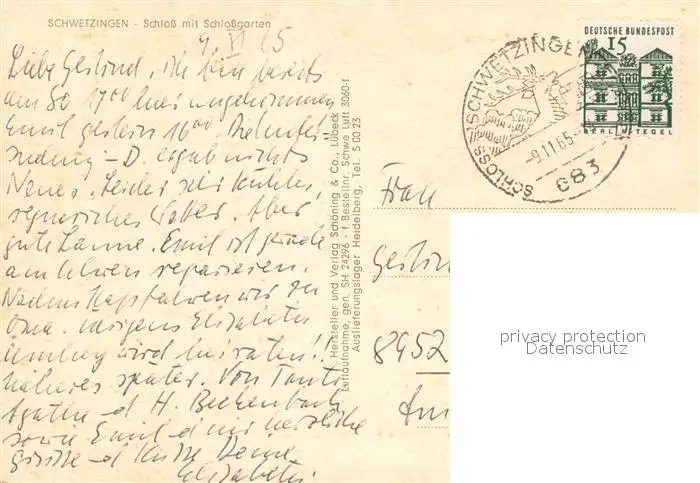 SCHWETZINGEN - Schloß mit Schloßgarten
9. XI 65
Liebe Gerlind, ich bin bereits
am So 17 00 hier angekommen
Emil gestern 16 00. Die Unter-
suchung - D. ergab nichts
Neues. Leider sehr kühles,
regnerisches Wetter. Aber
gute Laune. Emil ist gerade
am Uhren reparieren.
Nachm. fahren wir zu
Oma. Morgens Elisabeth
wird heiraten!!
Näheres später. Von Tante
Agathe d H. Beckenbach
sowie Emil d mir herzliche
Grüße d Küsse Deine
Elisabeth
Hersteller und Verlag Schöning & Co., Lübeck
Luftaufnahme, gen. SH 24296 - f Bestellnr. Schwe Luft 3060-f
Auslieferungslager Heidelberg, Tel. 5 00 23
DEUTSCHE BUNDESPOST
15
BERLIN-TEGEL
SCHLOSS SCHWETZINGEN
-9.11.65-
683
Frau
Gerlin
8952
privacy protection
Datenschutz